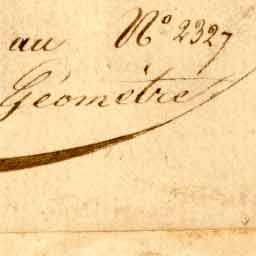 au N° 2327
Géomètre